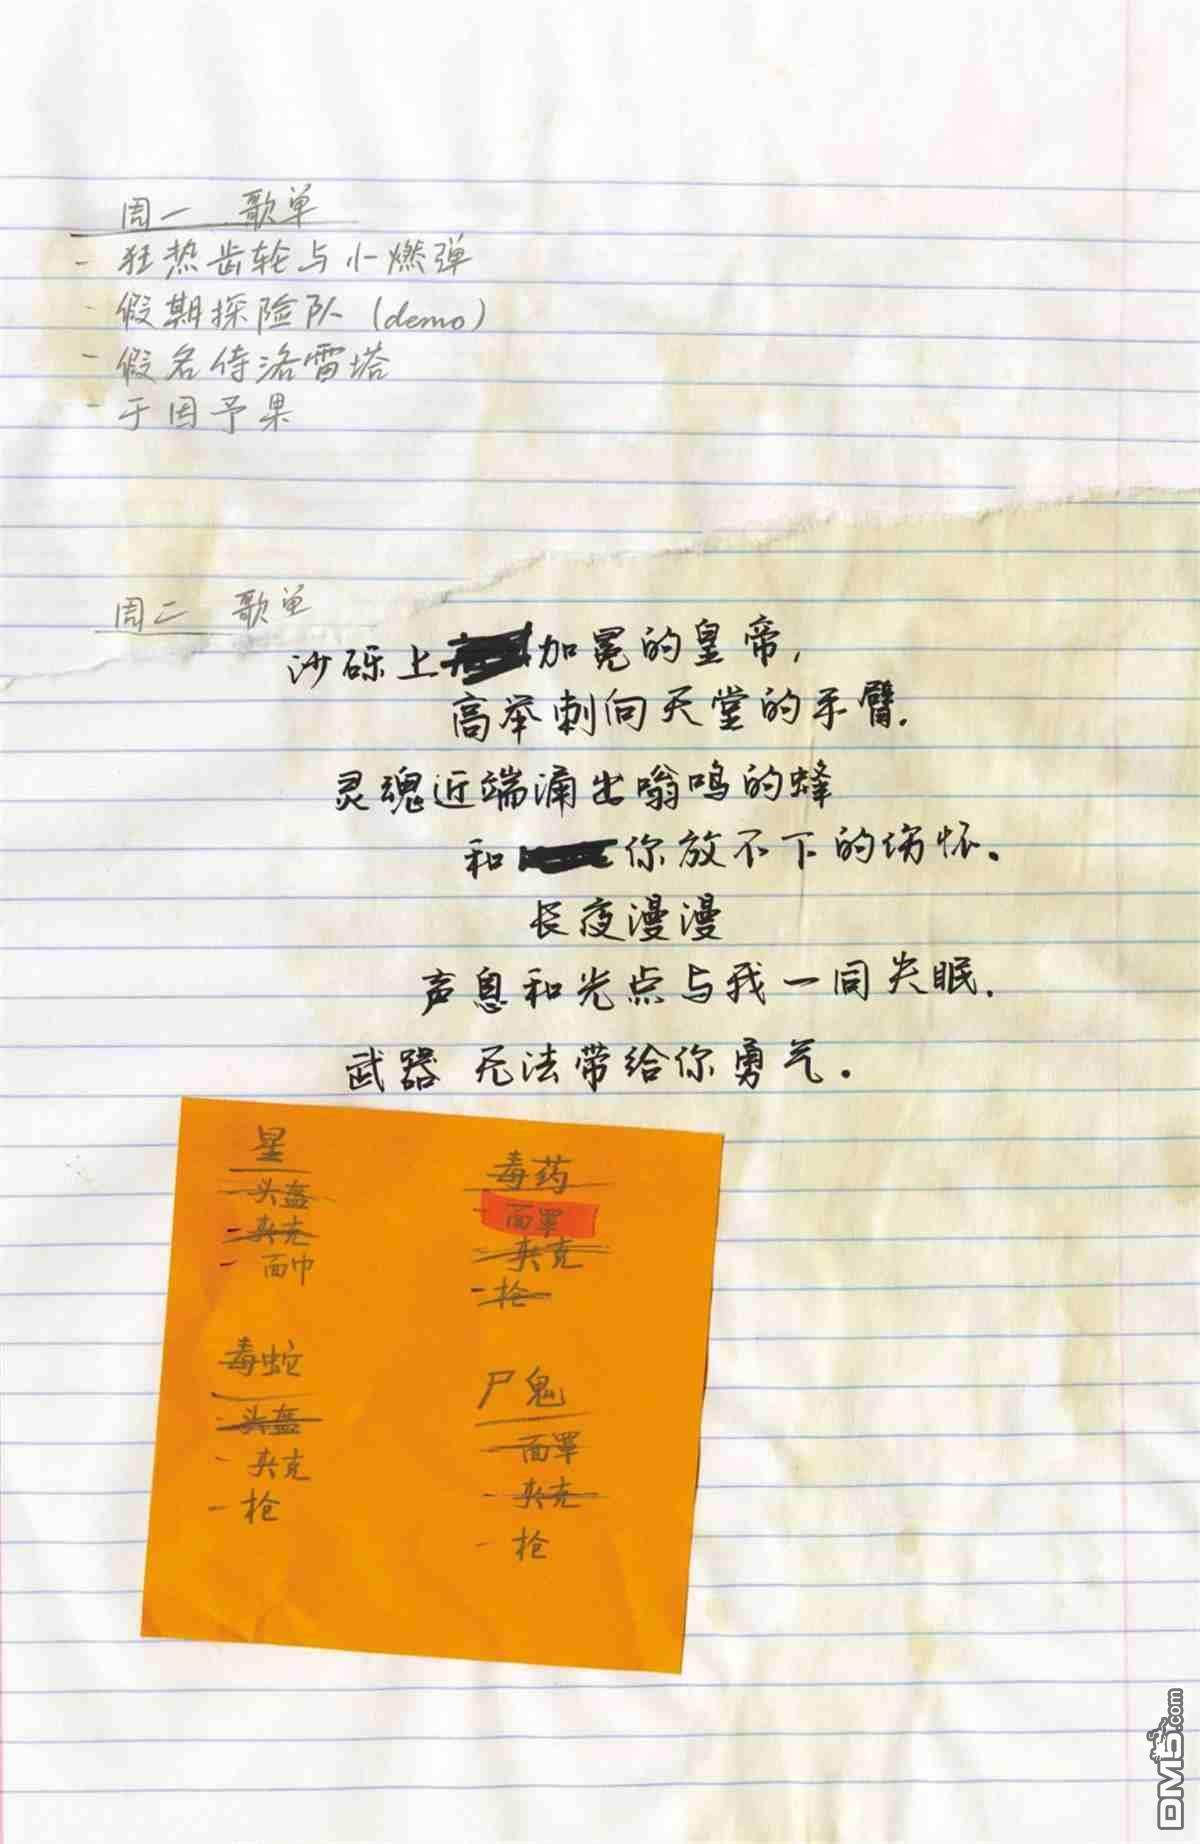 周一 歌单
- 狂热齿轮与小燃弹
- 假期探险队 (demo)
- 假名侍洛雷塔
- 于因予果
周二 歌单
沙砾上加冕的皇帝,
高举刺向天堂的手臂.
灵魂近端涌出嗡鸣的蜂
和你放不下的伤怀。
长夜漫漫
声息和光点与我一同失眠.
武器 无法带给你勇气.
星
- 头盔
- 夹克
- 面巾
毒药
- 面罩
- 夹克
- 枪
毒蛇
- 头盔
- 夹克
- 枪
尸鬼
- 面罩
- 夹克
- 枪
DM5.com